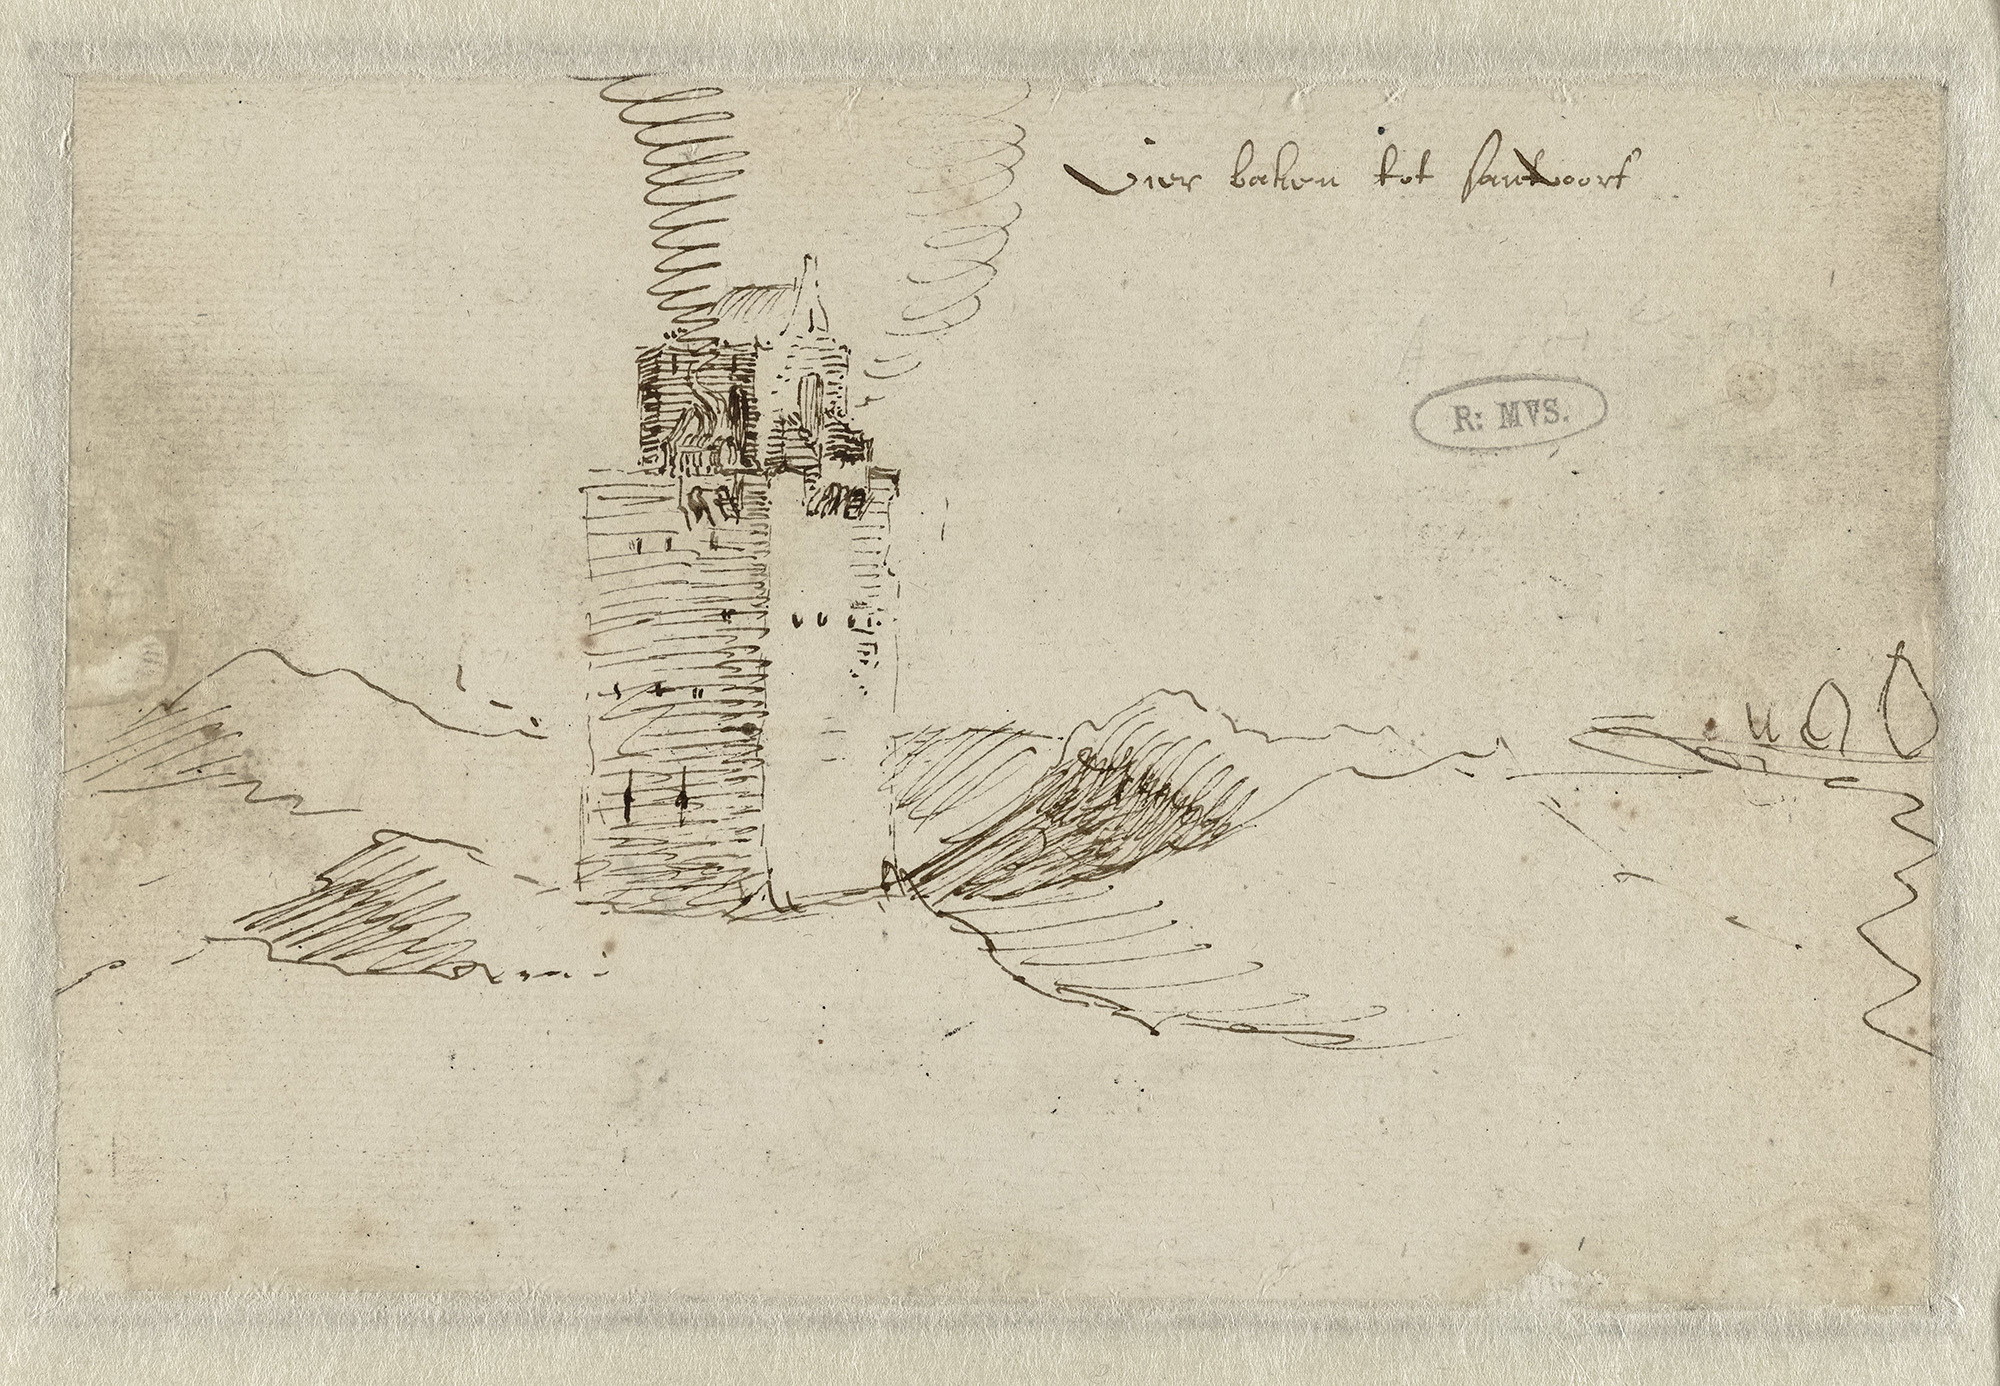 Vier baken tot santvoort
R: MVS.